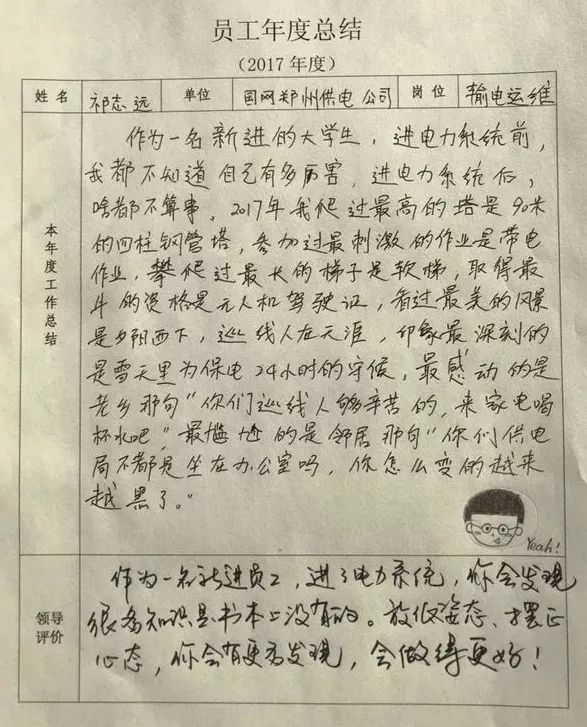 员工年度总结
（2017 年度）
姓 名 祁志远 单位 国网郑州供电公司 岗 位 输电运维
本年度工作总结
作为一名新进的大学生，进电力系统前，
我都不知道自己有多厉害，进电力系统后，
啥都不算事。2017年我爬过最高的塔是90米
的四柱钢管塔，参加过最刺激的作业是带电
作业，攀爬过最长的梯子是软梯，取得最
牛的资格是无人机驾驶证，看过最美的风景
是夕阳西下，巡线人在天涯，印象最深刻的
是雪天里为保电24小时的守候，最感动的是
老乡那句“你们巡线人够辛苦的，来家电喝
杯水吧，”最尴尬的是邻居那句“你们供电
局不都是坐在办公室吗，你怎么变的越来
越黑了。”
Yeah!
领导评价
作为一名新进员工，进了电力系统，你会发现
很多知识是书本上没有的。放低姿态、摆正
心态，你会有更多发现，会做得更好！